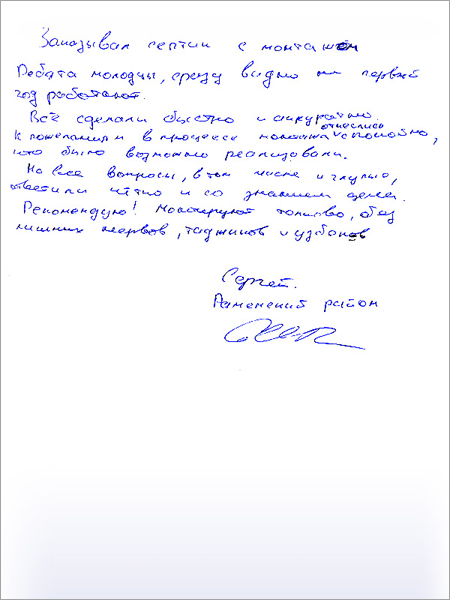 Заказывал септик с монтажом
Ребята молодцы, сразу видно не первый
год работают.
Всё сделали быстро и аккуратно.
К пожеланиям в процессе монтажа отнеслись спокойно,
что было возможно реализовали.
На все вопросы, в том числе и глупые,
ответили чётко и со знанием дела.
Рекомендую! Монтируют толково, без
лишних нервов, таджиков и узбеков
Сергей.
Раменский район